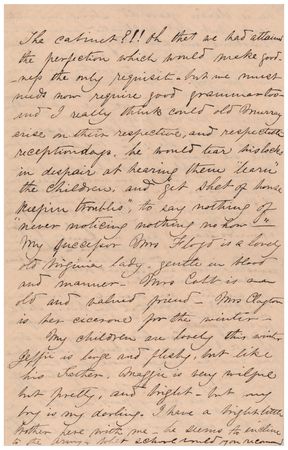 The cabinet?!! Oh that we had attained
the perfection which would make good-
ness the only requisit - but we must
needs now require good grammar too -
and I really think could old Murray
arise on their respective, and respectable
reception days, he would tear his locks
in despair at hearing them "larn"
the children, and get shet of house
keepin troubles", to say nothing of
"never noticing nothing no how" -
My successor Mrs Floyd is a lovely
old Virginia lady, gentle in blood
and manner - Mrs Cobb is an
old and valued friend - Mrs Clayton
is her cicerone for the winter -
My children are lovely this winter
Jeffie is large and fleshy, but like
his Father. Maggie is very wilful
but pretty, and bright - but my
boy is my darling. I have a bright little
brother here with me - he seems to incline
to the army - what school would you recommend